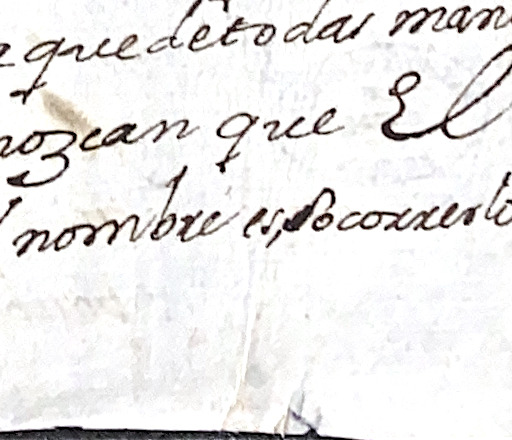 que de todas man
nozcan que El
nombre es, socorrerlo